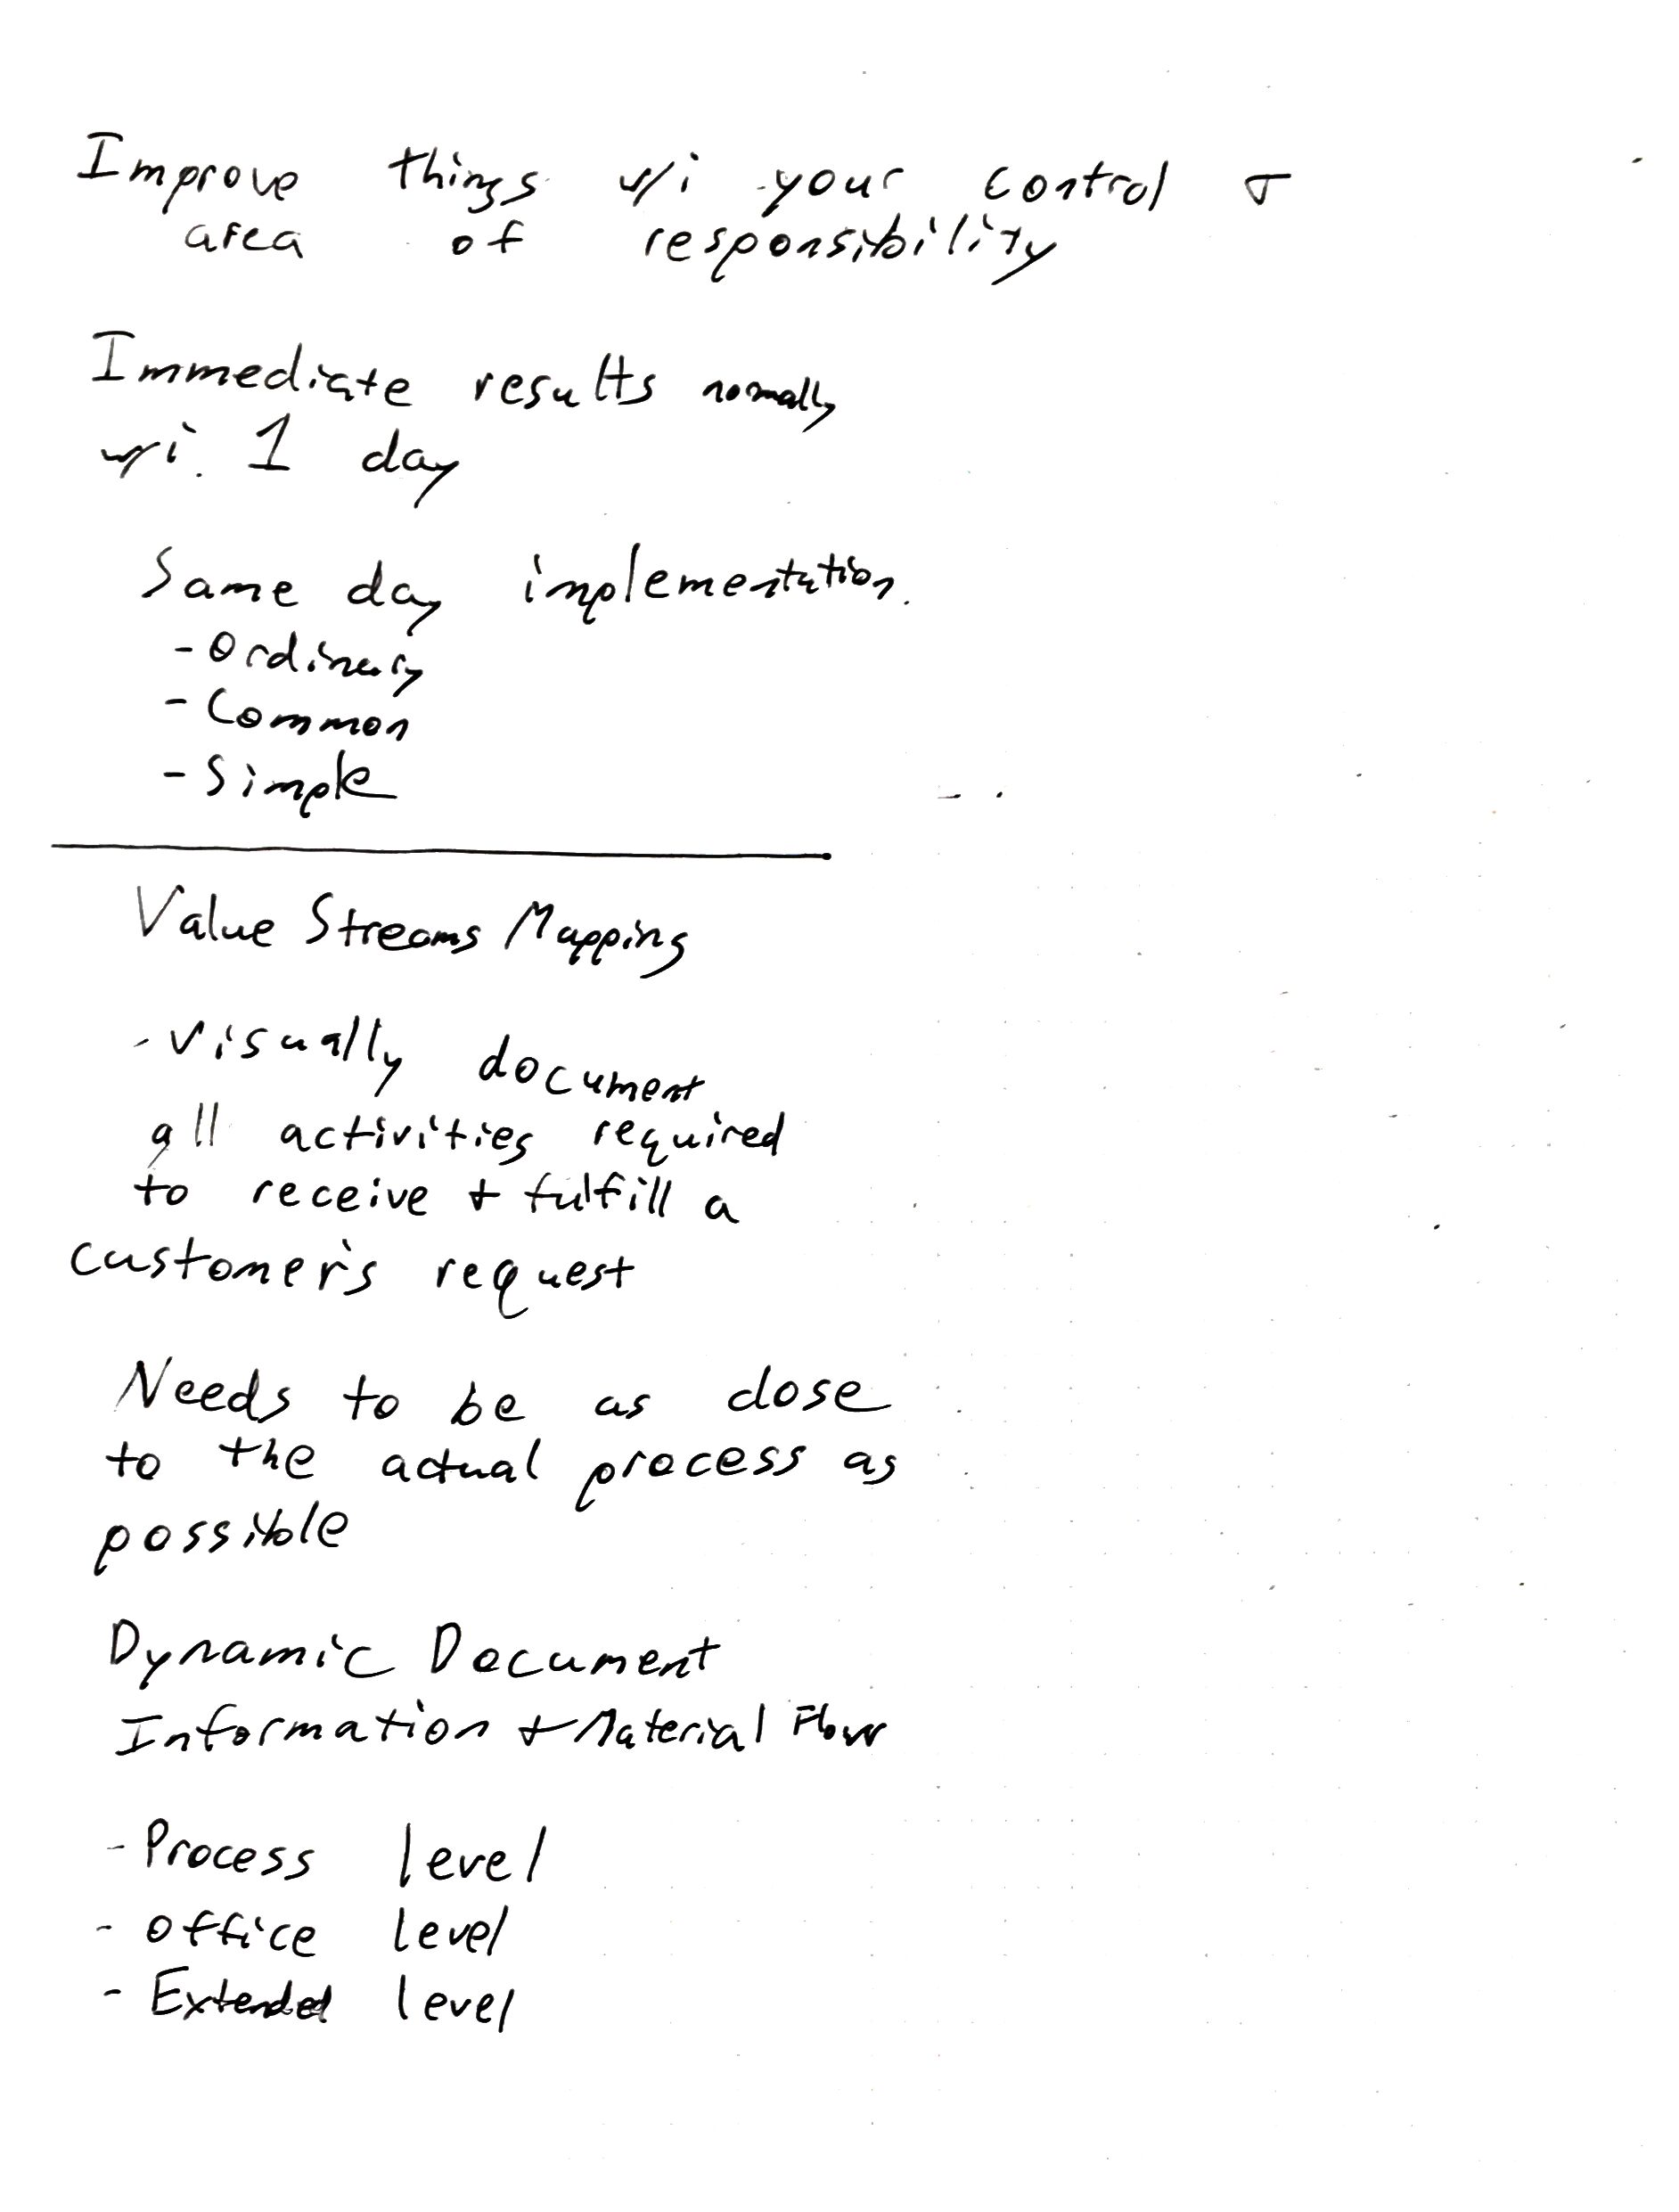 Improve things w/i your control +
area of responsibility
Immediate results normally
w/i. 1 day
Same day implementation.
- Ordinary
- Common
- Simple
Value Streams Mapping
- Visually document
all activities required
to receive + fulfill a
customer's request
Needs to be as close
to the actual process as
possible
Dynamic Document
Information + Material Flow
- Process level
- Office level
- Extended level